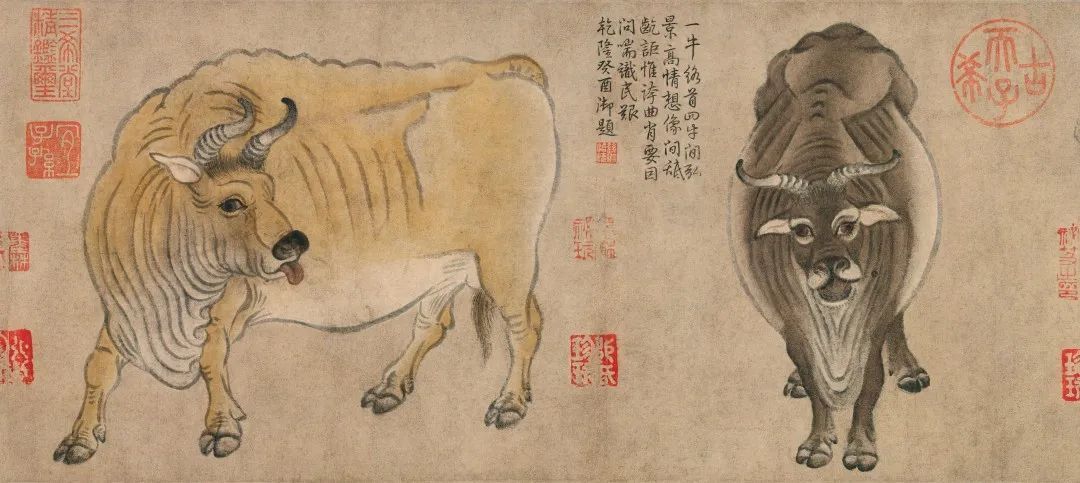 一牛絡首四牛閒弘
景高情想像間舐
齕詎惟誇曲肖要因
問喘識民艱
乾隆癸酉御題
古希天子
三希堂
精鑑璽
宜子孫